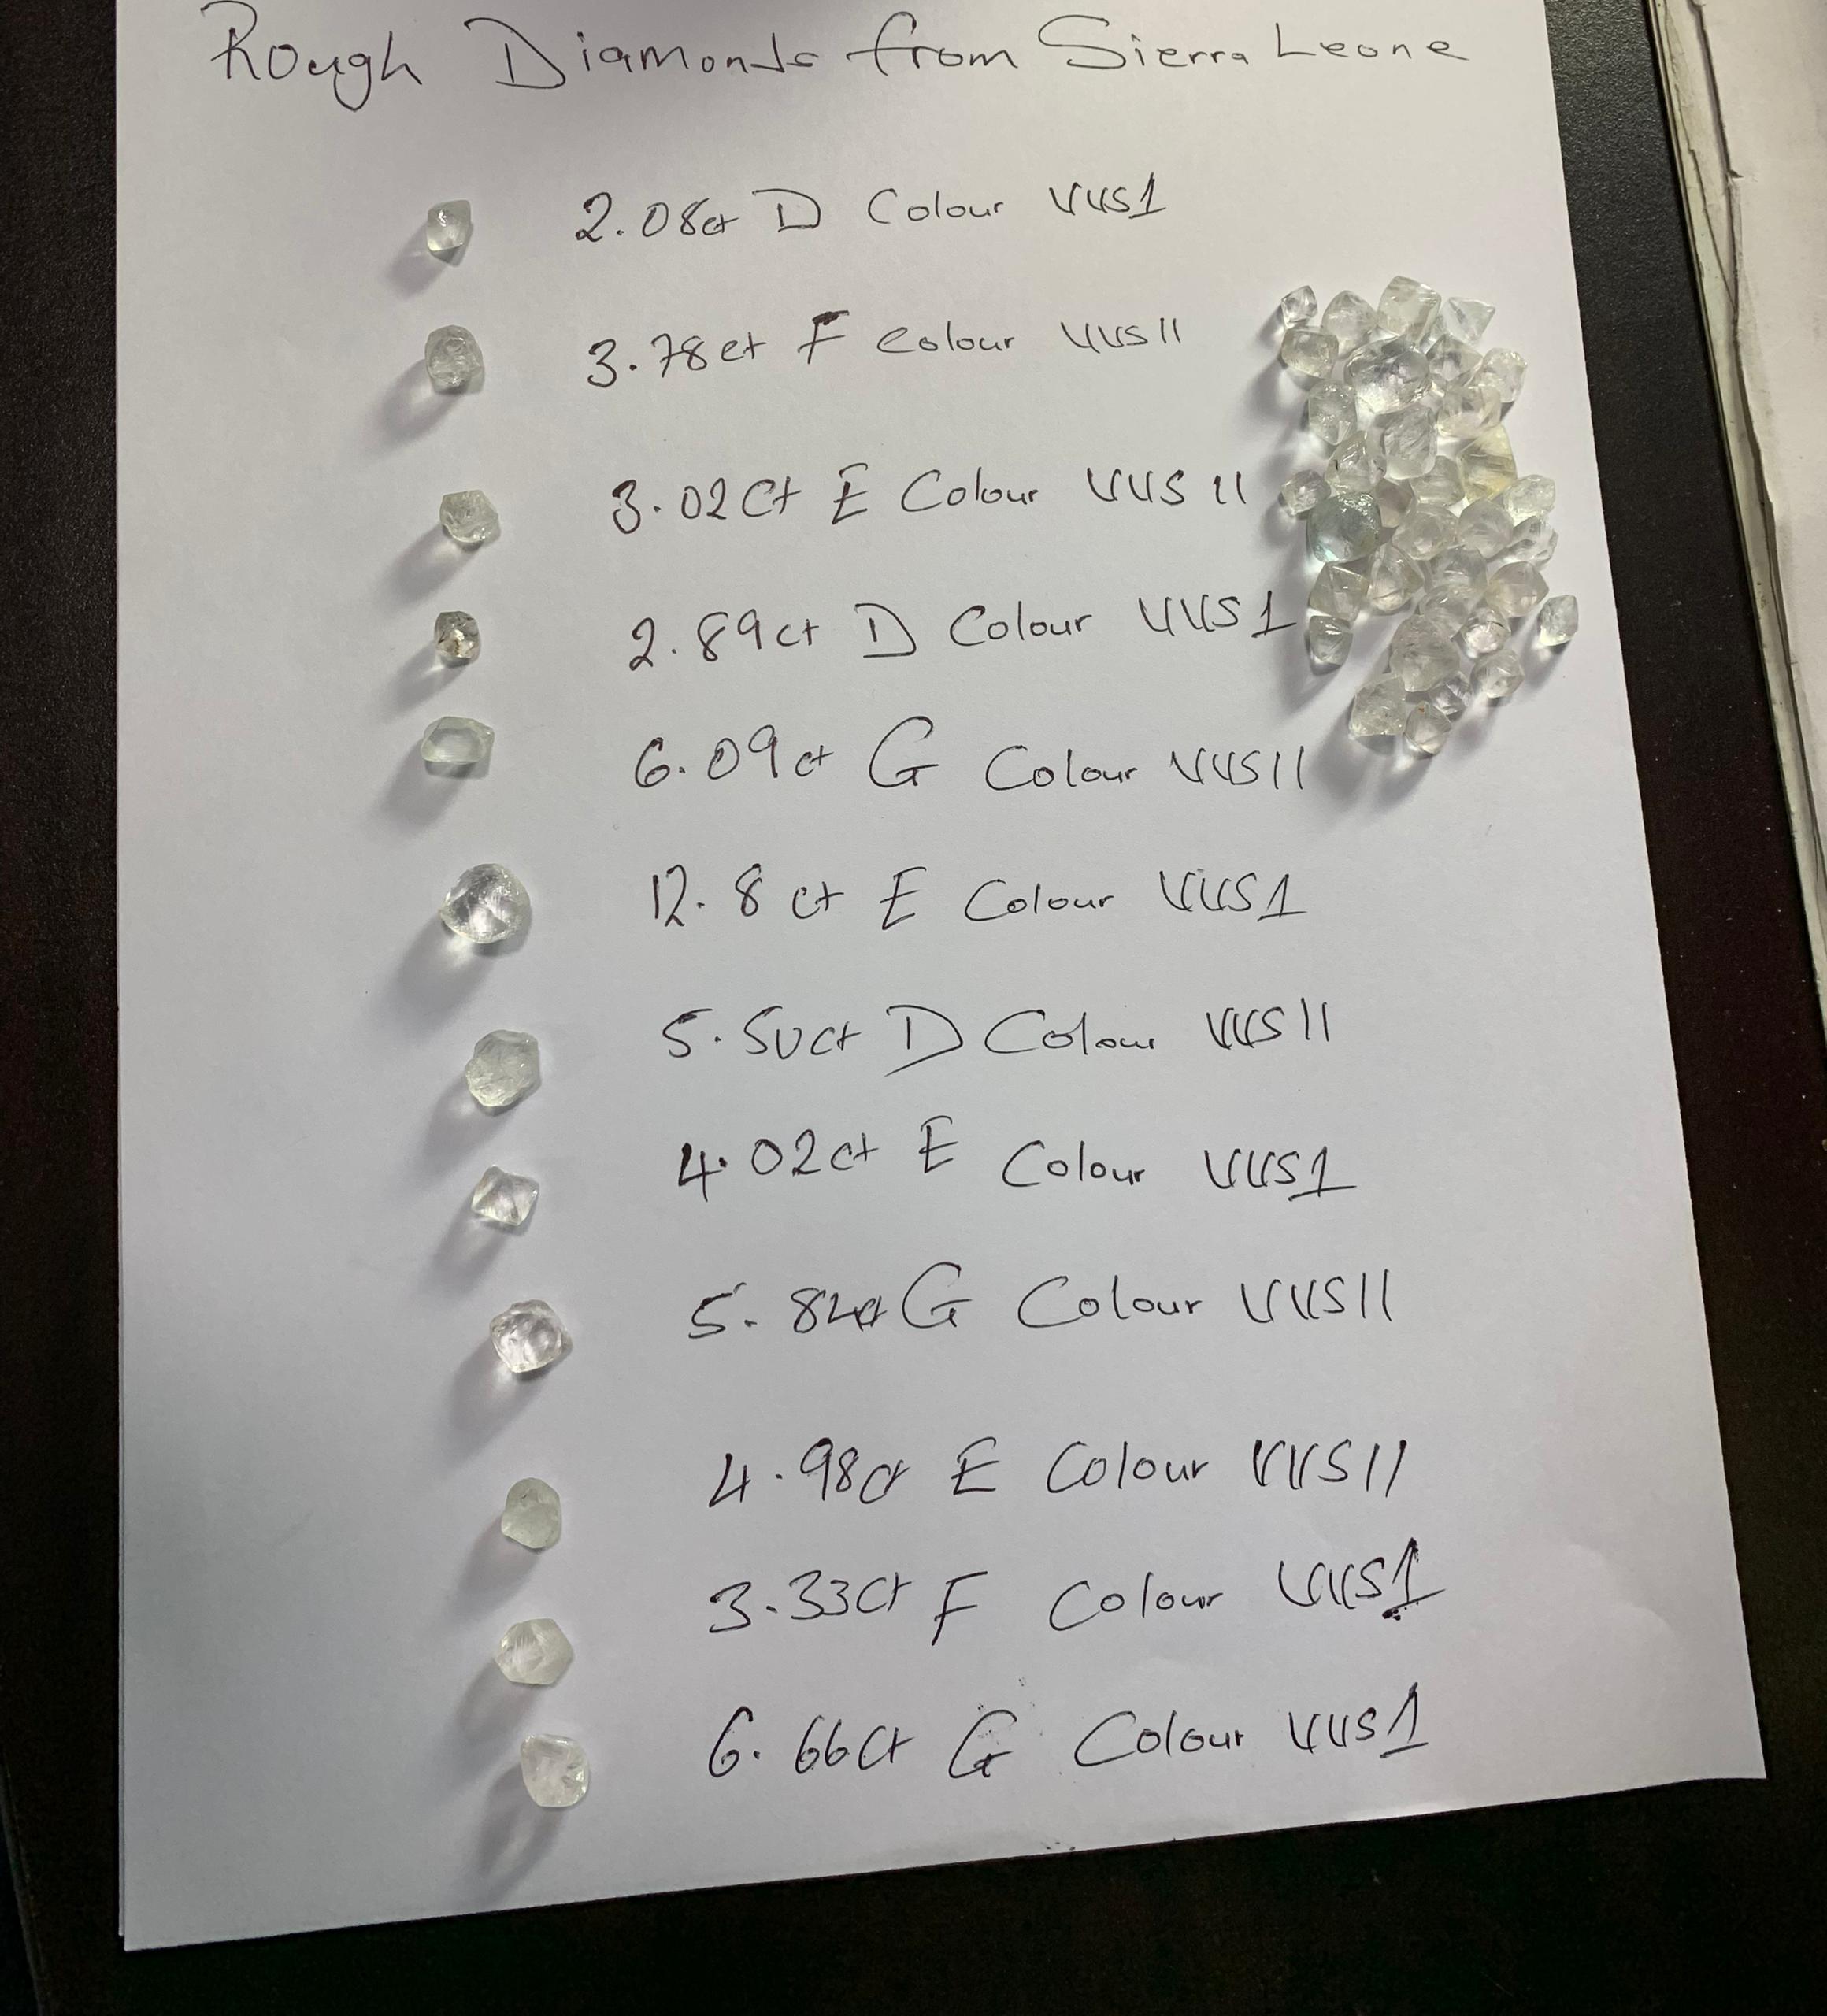 Rough Diamonds from Sierra Leone
2.08ct D Colour VVS1
3.78ct F Colour VVS11
3.02Ct E Colour VVS 11
2.89ct D Colour VVS1
6.09ct G Colour VVS11
12.8 ct E Colour VVS1
5.50ct D Colour VVS11
4.02ct E Colour VVS1
5.82ct G Colour VVS11
4.98ct E Colour VVS11
3.33Ct F Colour VVS1
6.66Ct G Colour VVS1